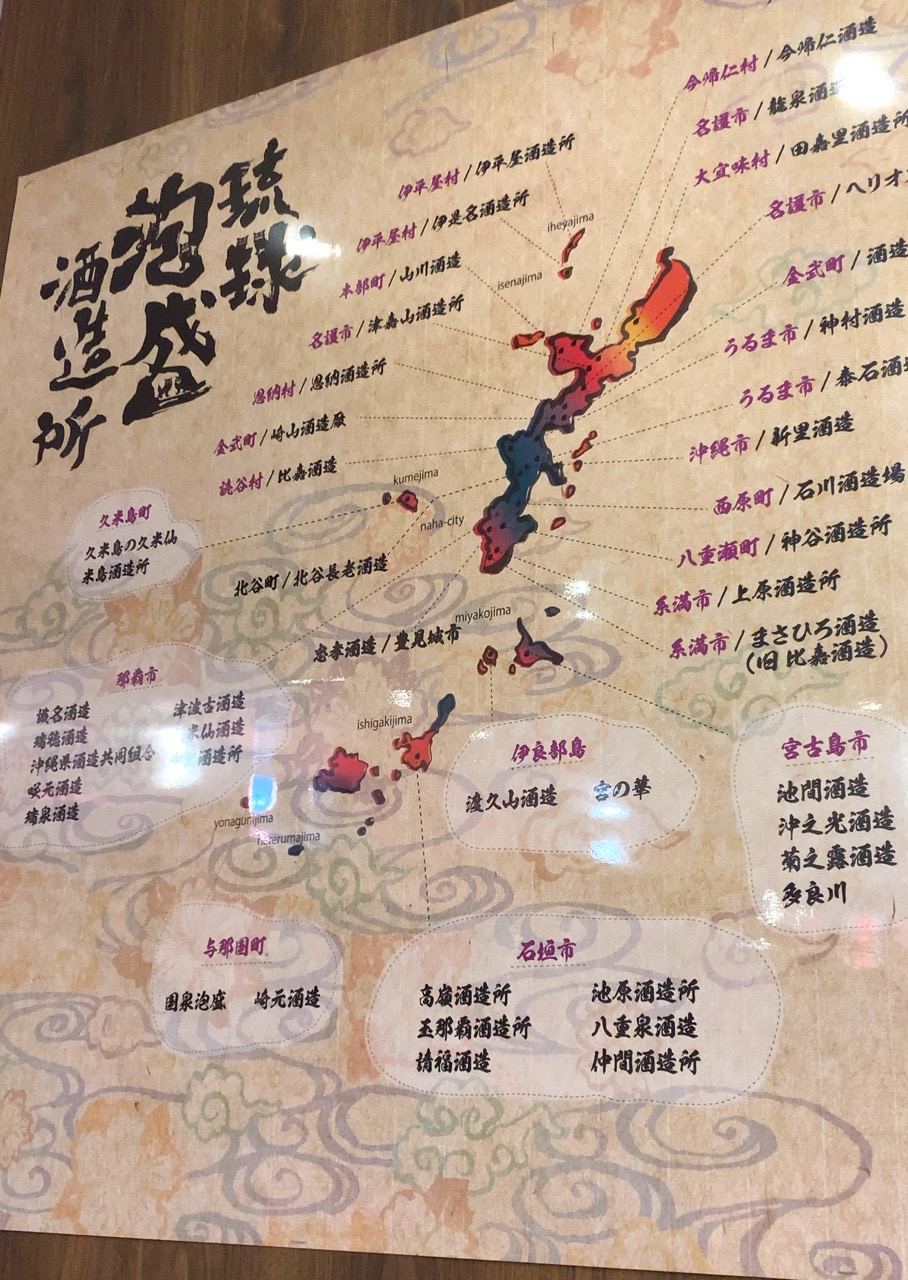 琉球
泡盛
酒造所
今帰仁村 / 今帰仁酒造
名護市 / 龍泉酒造
大宜味村 / 田嘉里酒造所
名護市 / ヘリオ
金武町 / 酒造
うるま市 / 神村酒造
うるま市 / 泰石酒造
沖縄市 / 新里酒造
西原町 / 石川酒造場
八重瀬町 / 神谷酒造所
糸満市 / 上原酒造所
糸満市 / まさひろ酒造
(旧 比嘉酒造)
伊平屋村 / 伊平屋酒造所
伊平屋村 / 伊是名酒造所
本部町 / 山川酒造
名護市 / 津嘉山酒造所
恩納村 / 恩納酒造所
金武町 / 崎山酒造廠
読谷村 / 比嘉酒造
iheyajima
isenajima
kumejima
naha-city
久米島町
久米島の久米仙
米島酒造所
北谷町 / 北谷長老酒造
忠孝酒造 / 豊見城市
miyakojima
那覇市
識名酒造
瑞穂酒造
沖縄県酒造共同組合
咲元酒造
瑞泉酒造
津波古酒造
米仙酒造
酒造所
ishigakijima
yonagunijima
haterumajima
伊良部島
渡久山酒造 宮の華
宮古島市
池間酒造
沖之光酒造
菊之露酒造
多良川
与那国町
国泉泡盛 崎元酒造
石垣市
高嶺酒造所 池原酒造所
玉那覇酒造所 八重泉酒造
請福酒造 仲間酒造所